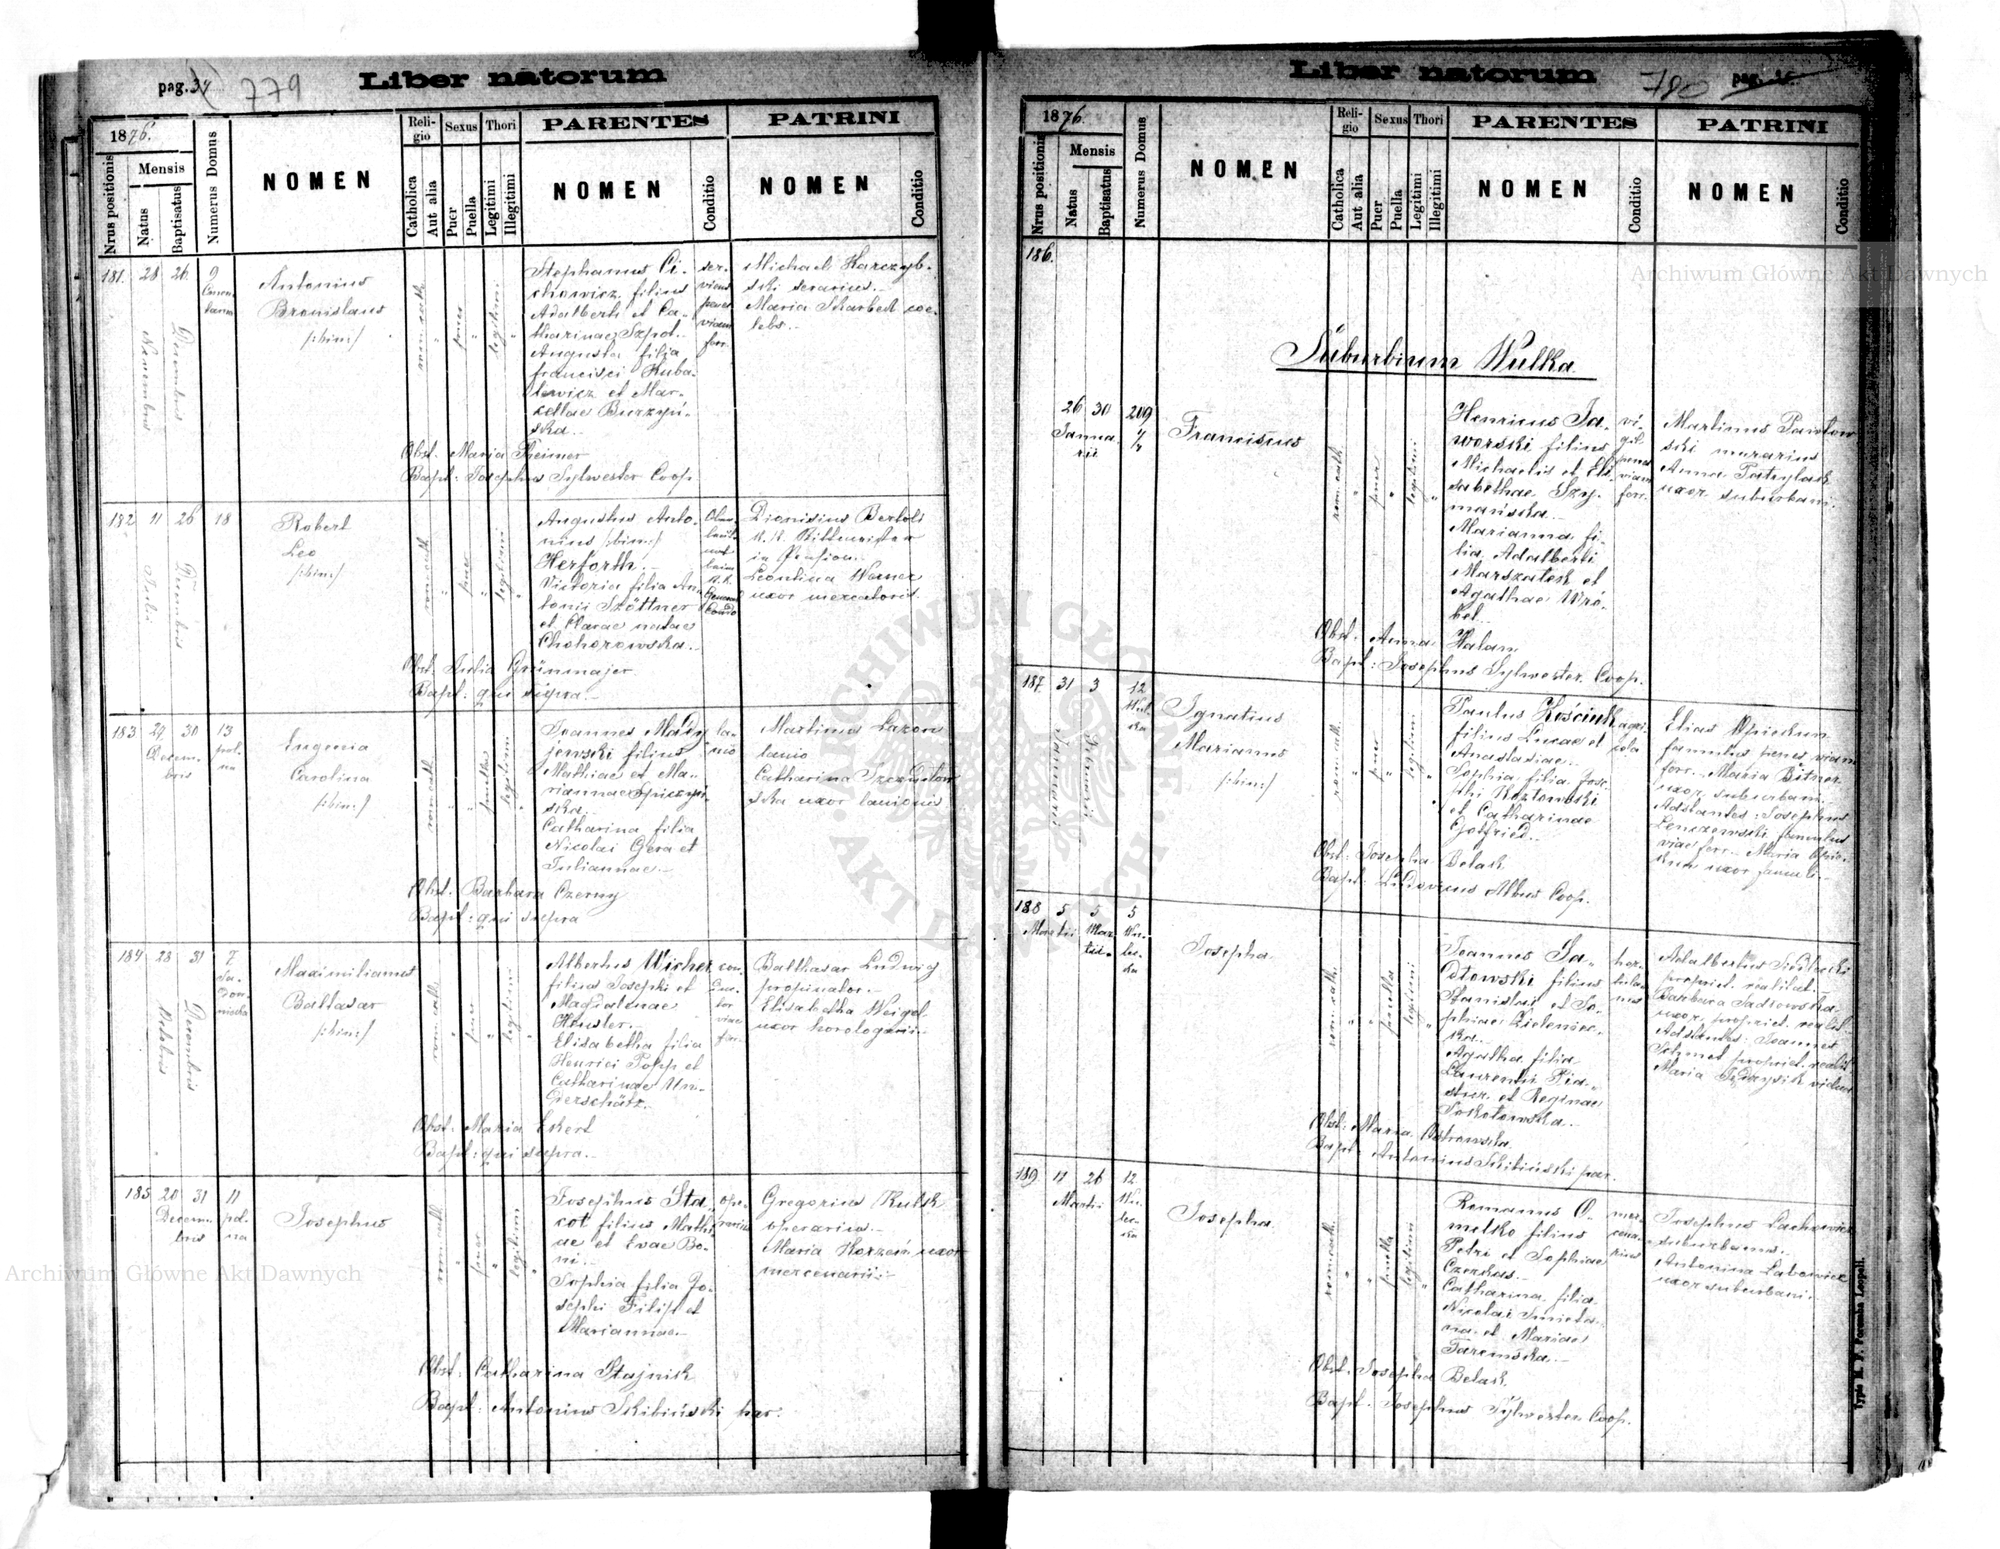 pag. 34 779
Liber natorum
1876.
Nrus positionis
Mensis
Natus
Baptisatus
Numerus Domus
NOMEN
Religio
Catholica
Aut alia
Sexus
Puer
Puella
Thori
Legitimi
Illegitimi
PARENTES
NOMEN
Conditio
PATRINI
NOMEN
Conditio
181. 28 Novembris 26 Decembris 9
Antonius
Bronislaus
/:bin:/
rom cath " puer " legitimi "
Stephanus Ci-
chowicz filius
Adalberti et Ca-
tharinae Szpot.
Augusta filia
Francisci Kuba-
lewicz et Mar-
cellae Burzyń-
ska.
ser-
viens
penes
viam
ferr.
Michael Karczyb-
ski serarius.
Maria Skarbek coe-
lebs.
Obst. Maria Reimer
Bapt: Josephus Sylwester Coop.
182 11 Julii 26 Decembris 18
Robert
Leo
/:bin:/
rom cath " puer " legitimi "
Augustus Anto-
nius /:bin:/
Herforth.
Victoria filia An-
tonii Szöttner
et Clarae natae
Chohorowska.
Dionisius Bertoli
k. k. Rittmeister
in Pension.
Leontina Werner
uxor mercatoris.
Obst. Julia Grünmajer
Bapt: qui supra.
183 29 30 13
Decem-
bris
pol-
na
Eugenia
Carolina
/:bin:/
rom cath " " puella legitimi "
Joannes Mady-
jewski filius
Mathiae et Ma-
riannae Spiczyń-
ska.
Catharina filia
Nicolai Gera et
Juliannae.
la-
nio
Martinus Lazor
lanio
Catharina Szczudłow
ska uxor lanionis
Obst. Barbara Czerny
Bapt: qui supra
184 28 Octobris 31 Decembris 7
Maximilianus
Baltasar
/:bin:/
rom cath " puer " legitimi "
Albertus Wicher
filius Josephi et
Magdalenae
Heusler.
Elisabetha filia
Henrici Popp et
Catharinae Un-
derschütz.
con-
duc-
tor
viae
ferr.
Balthasar Ludwig
propinator.
Elisabetha Weigel
uxor horologarii.
Obst: Maria Ekert
Bapt: qui supra.
185 20 31 11
Decem-
bris
pol-
na
Josephus
rom cath " puer " legitimi "
Josephus Sta-
cot filius Mathi-
ae et Evae Bo-
ni.
Sophia filia Jo-
sephi Filip et
Mariannae.
ope-
rarius
Gregorius Kulik
operarius.
Maria Korzeń uxor
mercenarii.
Obst: Catharina Stajnik
Bapt: Antonius Skibiński par.
Liber natorum
780 pag.
1876.
Nrus positionis
Mensis
Natus
Baptisatus
Numerus Domus
NOMEN
Religio
Catholica
Aut alia
Sexus
Puer
Puella
Thori
Legitimi
Illegitimi
PARENTES
NOMEN
Conditio
PATRINI
NOMEN
Conditio
186.
Suburbium Wulka
26 30 209
Janua-
rii
Franciscus
rom cath " puer " legitimi "
Henricus Ja-
worski filius
Michaelis et Eli-
sabethae Szy-
mańska.
Marianna fi-
lia Adalberti
Marszałek et
Agathae Wró-
bel.
vi-
gil
penes
viam
ferr.
Martinus Pawłow
ski murarius
Anna Patrylak
uxor suburbani.
Obst. Anna Halan
Bapt: Josephus Sylwester Coop.
187 31 Januarii 3 Februarii 12
Wul-
ka
Ignatius
Marianus
/:bin:/
rom cath " puer " legitimi "
Paulus Kościuk
filius Lucae et
Anastasiae.
Sophia filia Jose-
phi Kozłowski
et Catharinae
Gotfried.
agri-
cola
Elias Opiekun
famulus penes viam
ferr. Maria Bitner
uxor suburbani.
Adstantes: Josephus
Lenczewski famulus
viae ferr. Maria Opie-
kun uxor famuli.
Obst: Josepha Belak
Bapt: Ludovicus Albus Coop.
188 5 5 5
Martii Mar-
tii
Wu-
lec-
ka
Josepha
rom cath " " puella legitimi "
Joannes Sa-
dłowski filius
Stanislai et So-
phiae Zieleniec-
ka.
Agatha filia
Laurentii Pia-
stur et Reginae
Sokołowska.
hor-
tula-
nus
Adalbertus Siedlecki
propriet. realitat.
Barbara Sadłowska
uxor propriet. realit.
Adstantes: Joannes
Schmet propriet. realit.
Maria Jędrzysik vidua
Obst: Maria Ostrowska
Bapt: Antonius Skibiński par.
189 11 26 12
Martii
Wu-
lec-
ka
Josepha
rom cath " " puella legitimi "
Romanus O-
melko filius
Petri et Sophiae
Czerkas.
Catharina filia
Nicolai Smieta-
na et Mariae
Taremska.
mer-
cena-
rius
Josephus Lachowicz
suburbanus.
Antonina Labowicz
uxor suburbani.
Obst. Josepha Belak
Bapt. Josephus Sylwester Coop.
Typis M. F. Poremba Leopoli.
Archiwum Główne Akt Dawnych
Archiwum Główne Akt Dawnych
ARCHIWUM GŁÓWNE AKT DAWNYCH